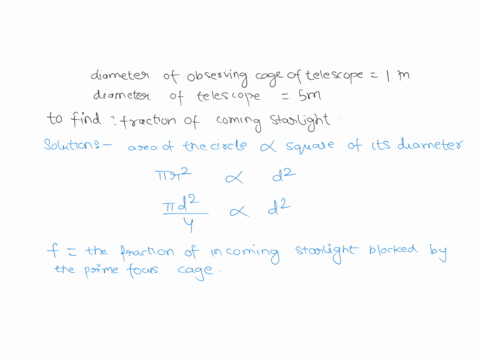 diameter of observing cage of telescope = 1 m
diameter of telescope = 5m
to find : fraction of coming starlight.
Solution:- area of the circle ∝ square of its diameter
πr² ∝ d²
πd²/4 ∝ d²
f = the fraction of incoming starlight blocked by
the prime focus cage.